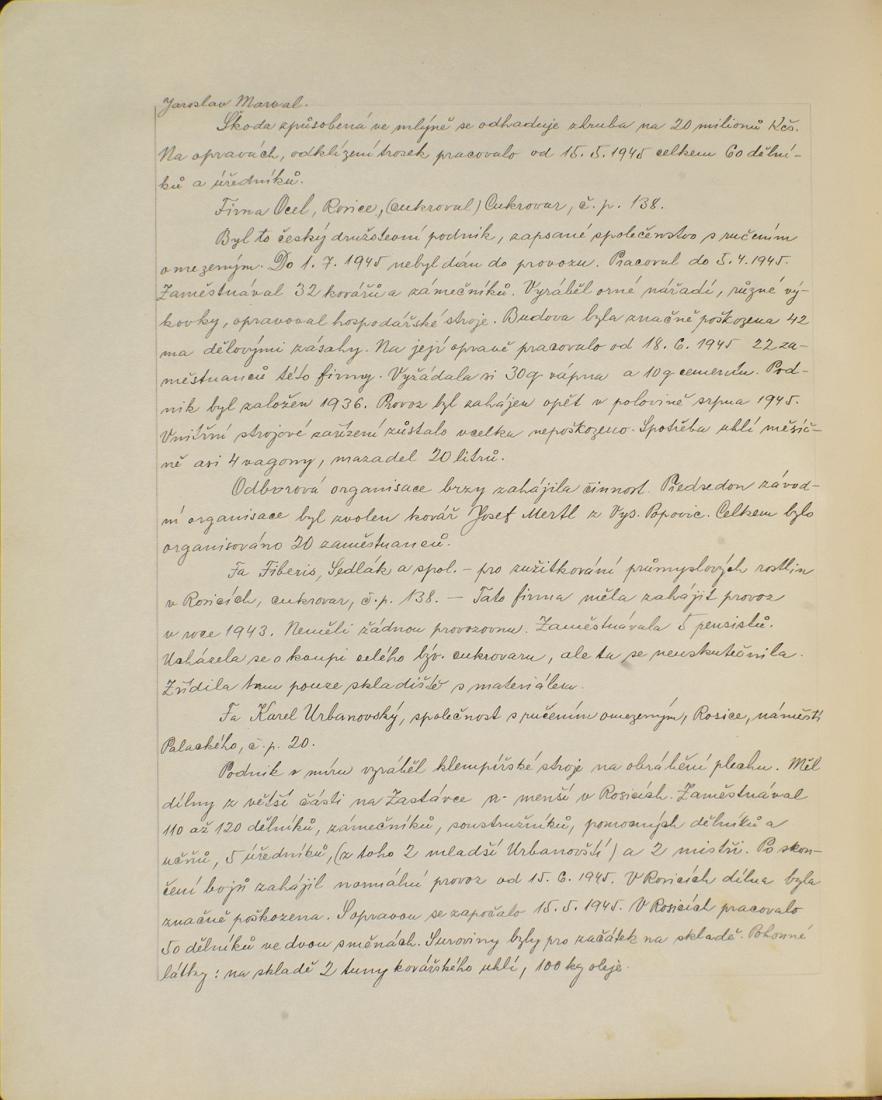 Jaroslav Marval.
Škoda způsobená ve mlýně se odhaduje zhruba na 20 milionů Kčs.
Na opravách, odklízení trosek pracovalo od 15.5.1945 celkem 60 dělní-
ků a úředníků.
Firma Ocel, Rosice, (cukroval) Cukrovar, č. p. 138.
Byl to český družstevní podnik, zapsané společenstvo s ručením
omezeným. Do 1.7.1945 nebyl dán do provozu. Pracoval do 5.4.1945.
Zaměstnával 32 kovářů a zámečníků. Vyráběl orné nářadí, různé vý-
kovky, opravoval hospodářské stroje. Budova byla značně poškozena 42
ma dělovými zásahy. Na její opravě pracovalo od 18.6.1945 22 za-
městnanců této firmy. Vyžádala si 30q vápna a 10q cementu. Pod-
nik byl založen 1936. Provoz byl zahájen opět v polovině srpna 1945.
Vnitřní strojové zařízení zůstalo vcelku nepoškozeno. Spotřeba uhlí měsíč-
ně asi 4 vagony, mazadel 20 litrů.
Odborová organisace brzy zahájila činnost. Předsedou závod-
ní organisace byl zvolen kovář Josef Mertl z Vys. Popovic. Celkem bylo
organisováno 20 zaměstnanců.
Fa Fiberis, Sedlák a spol. - pro zužitkování průmyslových rostlin
v Rosicích, cukrovar, č.p. 138. - Tato firma měla zahájit provoz
v roce 1943. Neměli žádnou provozovnu. Zaměstnávala 5 pensistů.
Ucházela se o koupi celého býv. cukrovaru, ale ta se neuskutečnila.
Zřídila tam pouze skladiště s materiálem.
Fa Karel Urbanovský, společnost s ručením omezeným, Rosice, náměstí
Palackého, č.p. 20.
Podnik v míru vyráběl klempířské stroje na obrábění plechu. Měl
dílny z větší části na Zastávce a menší v Rosicích. Zaměstnával
110 až 120 dělníků, zámečníků, soustružníků, pomocných dělníků a
učňů, 5 úředníků, (z toho 2 mladší Urbanovští) a 2 mistři. Po skon-
čení bojů zahájil normální provoz od 15.6.1945. V Rosicích dílna byla
značně poškozena. S opravou se započalo 15.5.1945. V Rosicích pracovalo
50 dělníků ve dvou směnách. Suroviny byly pro začátek na skladě. Pohonné
látky: na skladě 2 tuny kovářského uhlí, 100 kg oleje.